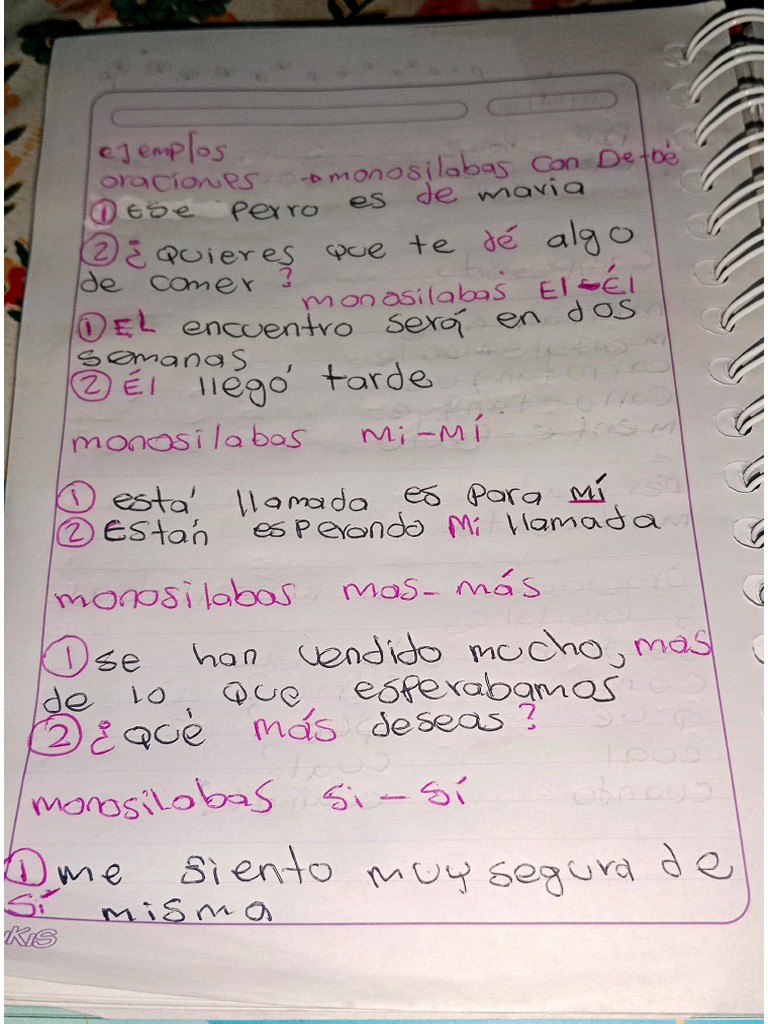 ejemplos
oraciones → monosilabas con De-Dé
① Ese perro es de maria
② ¿Quieres que te dé algo
de comer?
monosilabas El-Él
① EL encuentro será en dos
semanas
② Él llegó tarde
monosilabas Mi-Mí
① está llamada es para mí
② Están esperando Mi llamada
monosilabas mas-más
① se han vendido mucho, mas
de lo que esperabamos
② ¿Qué más deseas?
monosilabas si-sí
① me siento muy segura de
sí misma
KIS